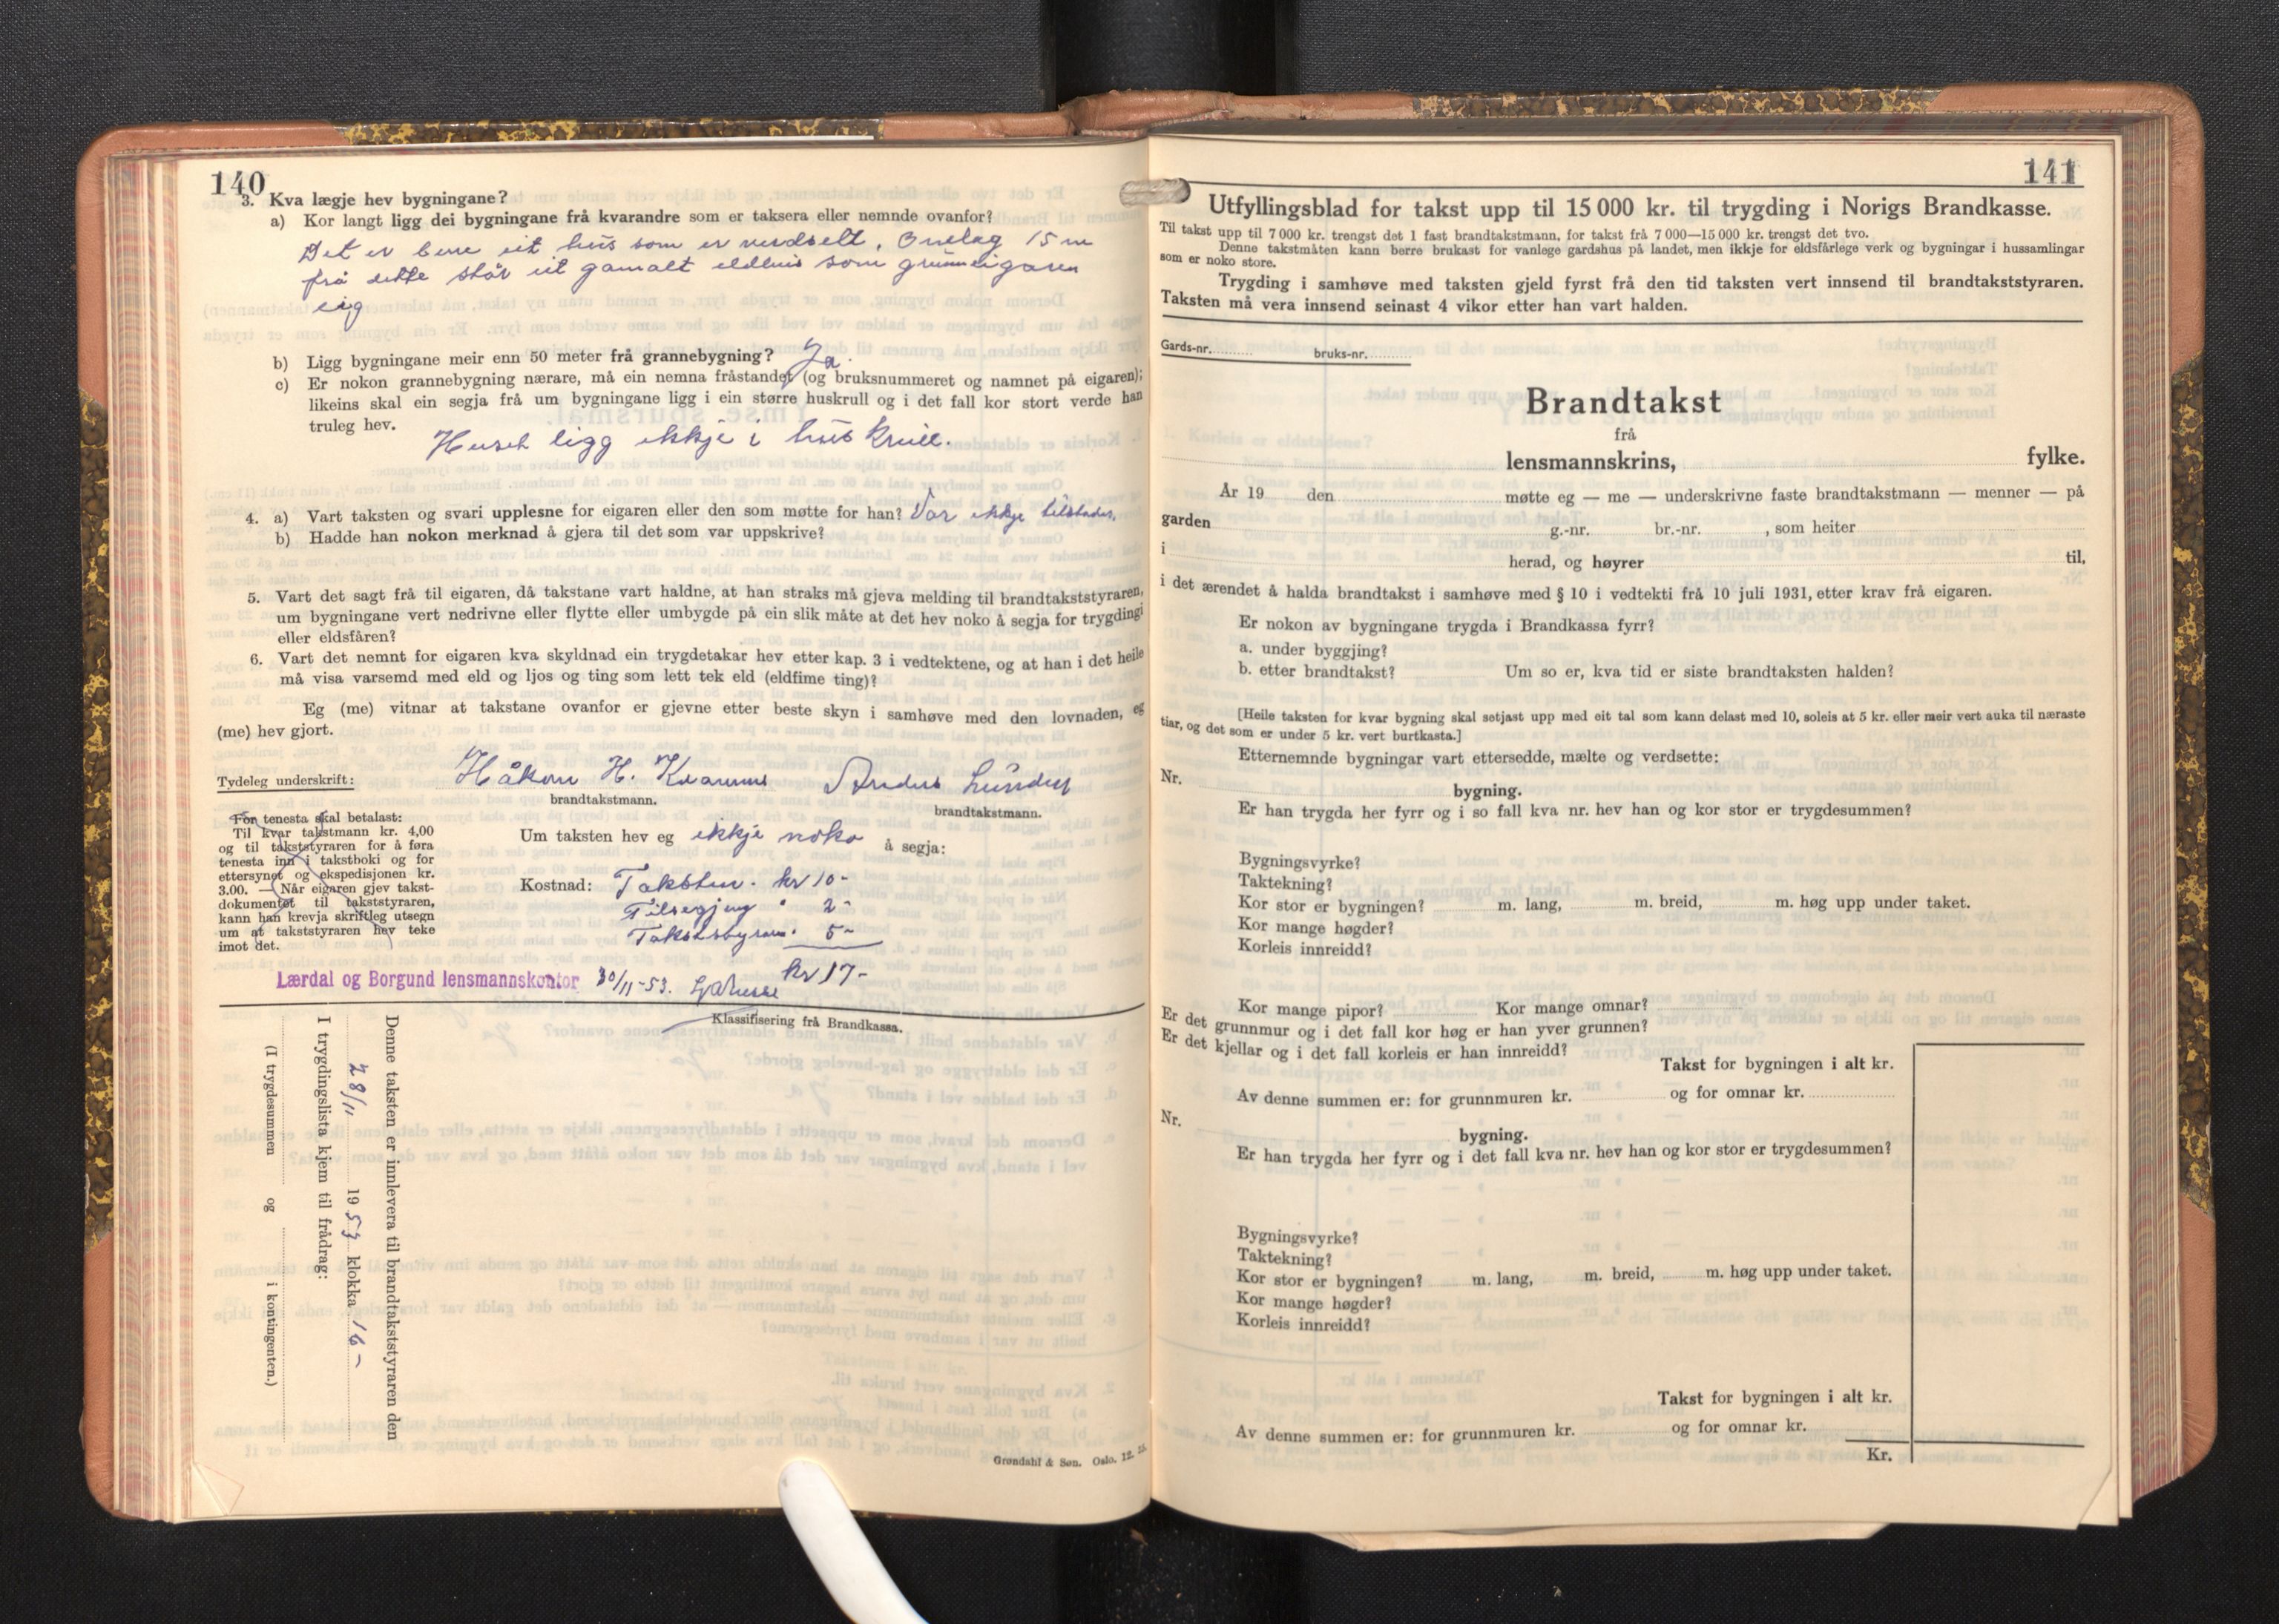 140
3. Kva lægje hev bygningane?
a) Kor langt ligg dei bygningane frå kvarandre som er taksera eller nemnde ovanfor?
Det er bere eit hus som er verdselt. Omlag 15 m
frå dette står eit gamalt eldhus som grunneigaren
eig
b) Ligg bygningane meir enn 50 meter frå grannebygning? Ja.
c) Er nokon grannebygning nærare, må ein nemna fråstandet (og bruksnummeret og namnet på eigaren);
likeins skal ein segja frå um bygningane ligg i ein større huskrull og i det fall kor stort verde han
truleg hev.
Huset ligg ikkje i hus krull.
4. a) Vart taksten og svari upplesne for eigaren eller den som møtte for han? Var ikkje tilstades.
b) Hadde han nokon merknad å gjera til det som var uppskrive?
5. Vart det sagt frå til eigaren, då takstane vart haldne, at han straks må gjeva melding til brandtakststyraren,
um bygningane vert nedrivne eller flytte eller umbygde på ein slik måte at det hev noko å segja for trygdingi
eller eldsfåren?
6. Vart det nemnt for eigaren kva skyldnad ein trygdetakar hev etter kap. 3 i vedtektene, og at han i det heile
må visa varsemd med eld og ljos og ting som lett tek eld (eldfime ting)?
Eg (me) vitnar at takstane ovanfor er gjevne etter beste skyn i samhøve med den lovnaden, eg
(me) hev gjort.
Tydeleg underskrift: Håkon H. Kvamme Anders Lunden
brandtakstmann. brandtakstmann.
For tenesta skal betalast:
Til kvar takstmann kr. 4,00
og til takststyraren for å føra
tenesta inn i takstboki og for
ettersynet og ekspedisjonen kr.
3.00. — Når eigaren gjev takst-
dokumentet til takststyraren,
kann han krevja skriftleg utsegn
um at takststyraren hev teke
imot det.
Um taksten hev eg ikkje noko å segja:
Kostnad: Taksten. kr 10-
Tilsegjing " 2-
Takststyraren. 5-
kr 17-
Lærdal og Borgund lensmannskontor 30/11-53.
Klassifisering frå Brandkassa.
Denne taksten er innlevera til brandtakststyraren den
28/11 1953 klokka 16-
I trygdingslista kjem til frådrag:
(I trygdesummen og i kontingenten.)
Grøndahl & Søn. Oslo. 12.
141
Utfyllingsblad for takst upp til 15 000 kr. til trygding i Norigs Brandkasse.
Til takst upp til 7 000 kr. trengst det 1 fast brandtakstmann, for takst frå 7 000—15 000 kr. trengst det tvo.
Denne takstmåten kann berre brukast for vanlege gardshus på landet, men ikkje for eldsfårlege verk og bygningar i hussamlingar
som er noko store.
Trygding i samhøve med taksten gjeld fyrst frå den tid taksten vert innsend til brandtakststyraren.
Taksten må vera innsend seinast 4 vikor etter han vart halden.
Gards-nr. bruks-nr.
Brandtakst
frå
lensmannskrins, fylke.
År 19 den møtte eg — me — underskrivne faste brandtakstmann — menner — på
garden g.-nr. br.-nr. , som heiter
i herad, og høyrer til,
i det ærendet å halda brandtakst i samhøve med § 10 i vedtekti frå 10 juli 1931, etter krav frå eigaren.
Er nokon av bygningane trygda i Brandkassa fyrr?
a. under byggjing?
b. etter brandtakst? Um so er, kva tid er siste brandtaksten halden?
[Heile taksten for kvar bygning skal setjast upp med eit tal som kann delast med 10, soleis at 5 kr. eller meir vert auka til næraste
tiar, og det som er under 5 kr. vert burtkasta.]
Etternemnde bygningar vart ettersedde, mælte og verdsette:
Nr. bygning.
Er han trygda her fyrr og i so fall kva nr. hev han og kor stor er trygdesummen?
Bygningsvyrke?
Taktekning?
Kor stor er bygningen? m. lang, m. breid, m. høg upp under taket.
Kor mange høgder?
Korleis innreidd?
Kor mange pipor? Kor mange omnar?
Er det grunnmur og i det fall kor høg er han yver grunnen?
Er det kjellar og i det fall korleis er han innreidd?
Takst for bygningen i alt kr.
Av denne summen er: for grunnmuren kr. og for omnar kr.
Nr. bygning.
Er han trygda her fyrr og i det fall kva nr. hev han og kor stor er trygdesummen?
Bygningsvyrke?
Taktekning?
Kor stor er bygningen? m. lang, m. breid, m. høg upp under taket.
Kor mange høgder?
Korleis innreidd?
Takst for bygningen i alt kr.
Av denne summen er: for grunnmuren kr. og for omnar kr.
Kr.